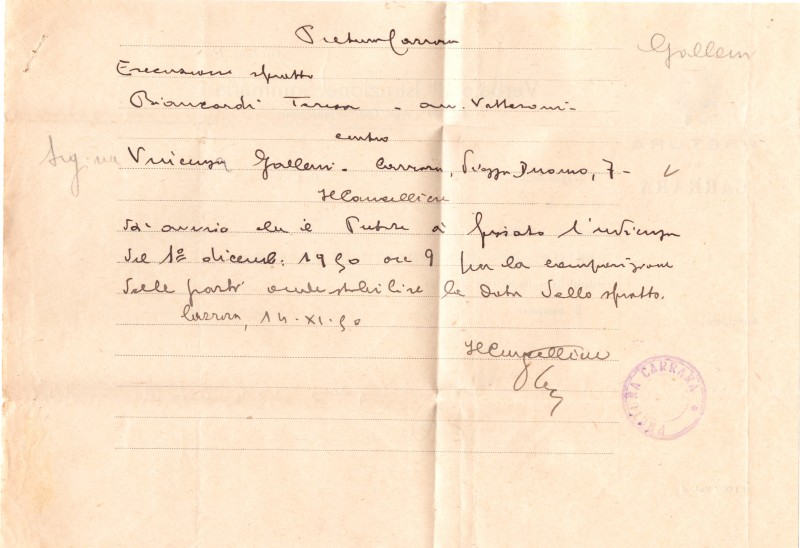 Pretura Carrara
Galleni
Esecuzione sfratto
Biancardi Teresa - avv. Vatteroni -
contro
Sig.na Vincenza Galleni - Carrara, Piazza Duomo, 7 -
Il Cancelliere
dà avviso che il Pretore à fissato l'udienza
del 1º dicemb: 1950 ore 9 per la comparizione
delle parti onde stabilire la data dello sfratto.
Carrara, 14-XI-50
Il Cancelliere
PRETURA CARRARA